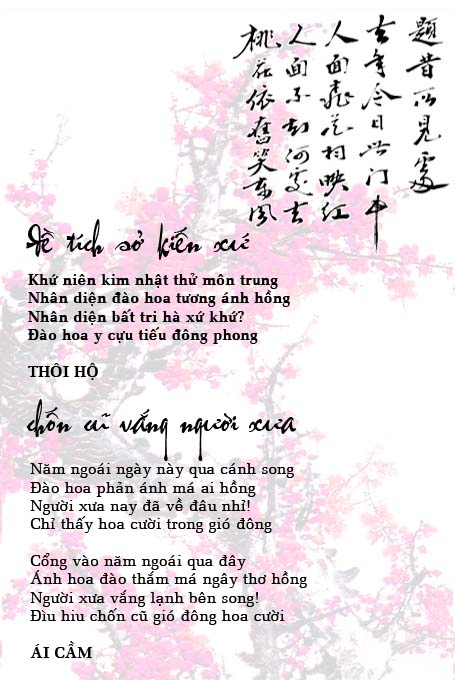 題昔所見處
去年今日此门中
人面桃花相映红
人面不知何處去
桃花依舊笑东风
Đề tích sở kiến xứ
Khứ niên kim nhật thử môn trung
Nhân diện đào hoa tương ánh hồng
Nhân diện bất tri hà xứ khứ?
Đào hoa y cựu tiếu đông phong
THÔI HỘ
chốn cũ vắng người xưa
Năm ngoái ngày này qua cánh song
Đào hoa phản ánh má ai hồng
Người xưa nay đã về đâu nhỉ!
Chỉ thấy hoa cười trong gió đông
Cổng vào năm ngoái qua đây
Ánh hoa đào thắm má ngây thơ hồng
Người xưa vắng lạnh bên song!
Đìu hiu chốn cũ gió đông hoa cười
ÁI CẦM